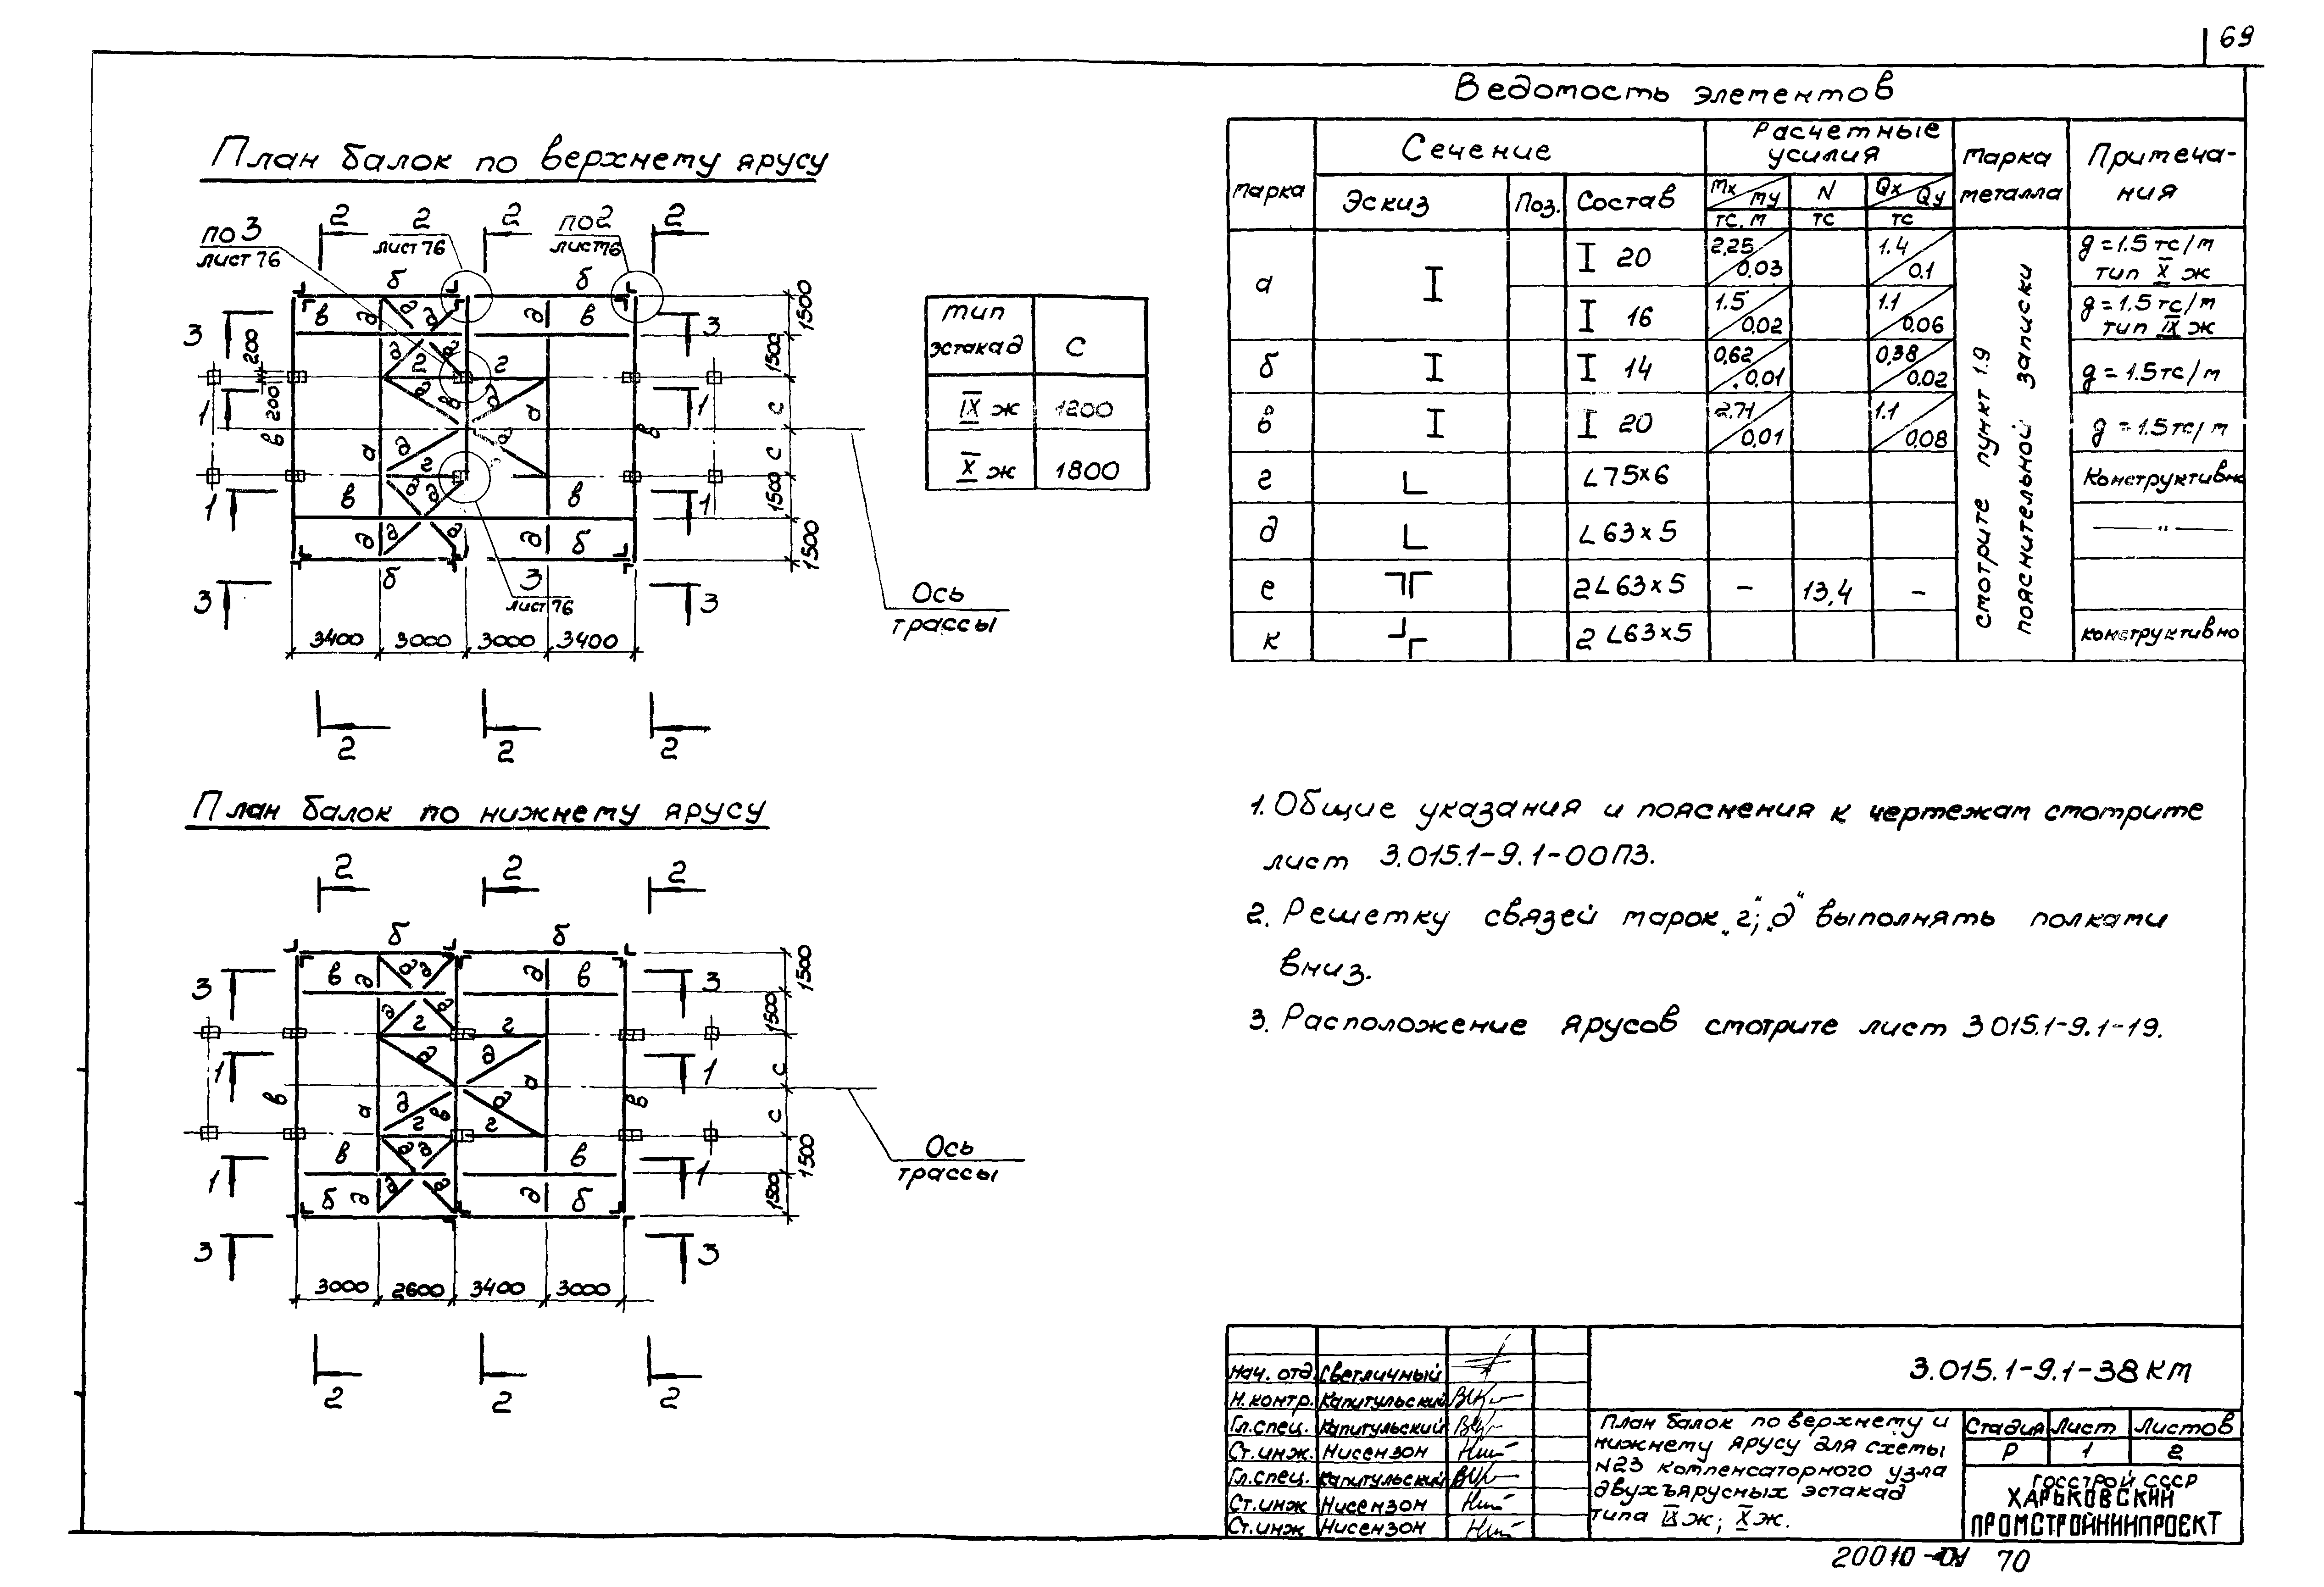 69
План балок по верхнему ярусу
2 2 2 2
по 3
лист 76
лист 76
по 2
лист 76
б б
в д д д д в
3 3
200
200
1500
1500
с
с
1500
1500
г г
1 1
в а д а в
1 1
в д д в
д д д д б
б
3
лист 76
3 3
Ось
трассы
3400 3000 3000 3400
2 2 2
тип
эстакад
с
IX ж 1200
X ж 1800
Ведомость элементов
марка
Сечение
Расчетные
усилия
марка
металла
Примеча-
ния
Эскиз Поз. Состав
Mx My N Qx Qy
тс.м тс тс
а I I 20 2,25 0,03 1.4 0.1 g=1.5 тс/м
тип X ж
I 16 1.5 0.02 1.1 0.06 g=1.5 тс/м
тип IX ж
б I I 14 0,62 0,01 0,38 0.02 g=1.5тс/м
в I I 20 2.71 0,01 1.1 0,08 g=1.5тс/м
г L L75×6 Конструктивно
д L L63×5 — " —
е 2L63×5 – 13,4 –
к 2L63×5 конструктивно
смотрите пункт 1.9
пояснительной записки
План балок по нижнему ярусу
2 2 2
б б
в д д д д в
3 3
1500
1500
с
с
1500
1500
д г д г
1 1
в а д д а в
д в д
г г
в д д в
1 1
б д д д д б
3 3
Ось
трассы
3000 2600 3400 3000
2 2 2
1. Общие указания и пояснения к чертежам смотрите
лист 3.015.1-9.1-00ПЗ.
2. Решетку связей марок „г"; „д" выполнять полками
вниз.
3. Расположение ярусов смотрите лист 3 015.1-9.1-19.
3.015.1-9.1-38КМ
Нач. отд. Светличный
Н.контр. Капитульский
Гл.спец. Капитульский
Ст.инж. Нисензон
Гл.спец. Капитульский
Ст.инж Нисензон
Ст.инж Нисензон
План балок по верхнему и
нижнему ярусу для схемы
N23 компенсаторного узла
двухъярусных эстакад
типа IX ж; X ж.
Стадия Лист Листов
Р 1 2
ГОССТРОЙ СССР
ХАРЬКОВСКИЙ
ПРОМСТРОЙНИИПРОЕКТ
20010-01 70